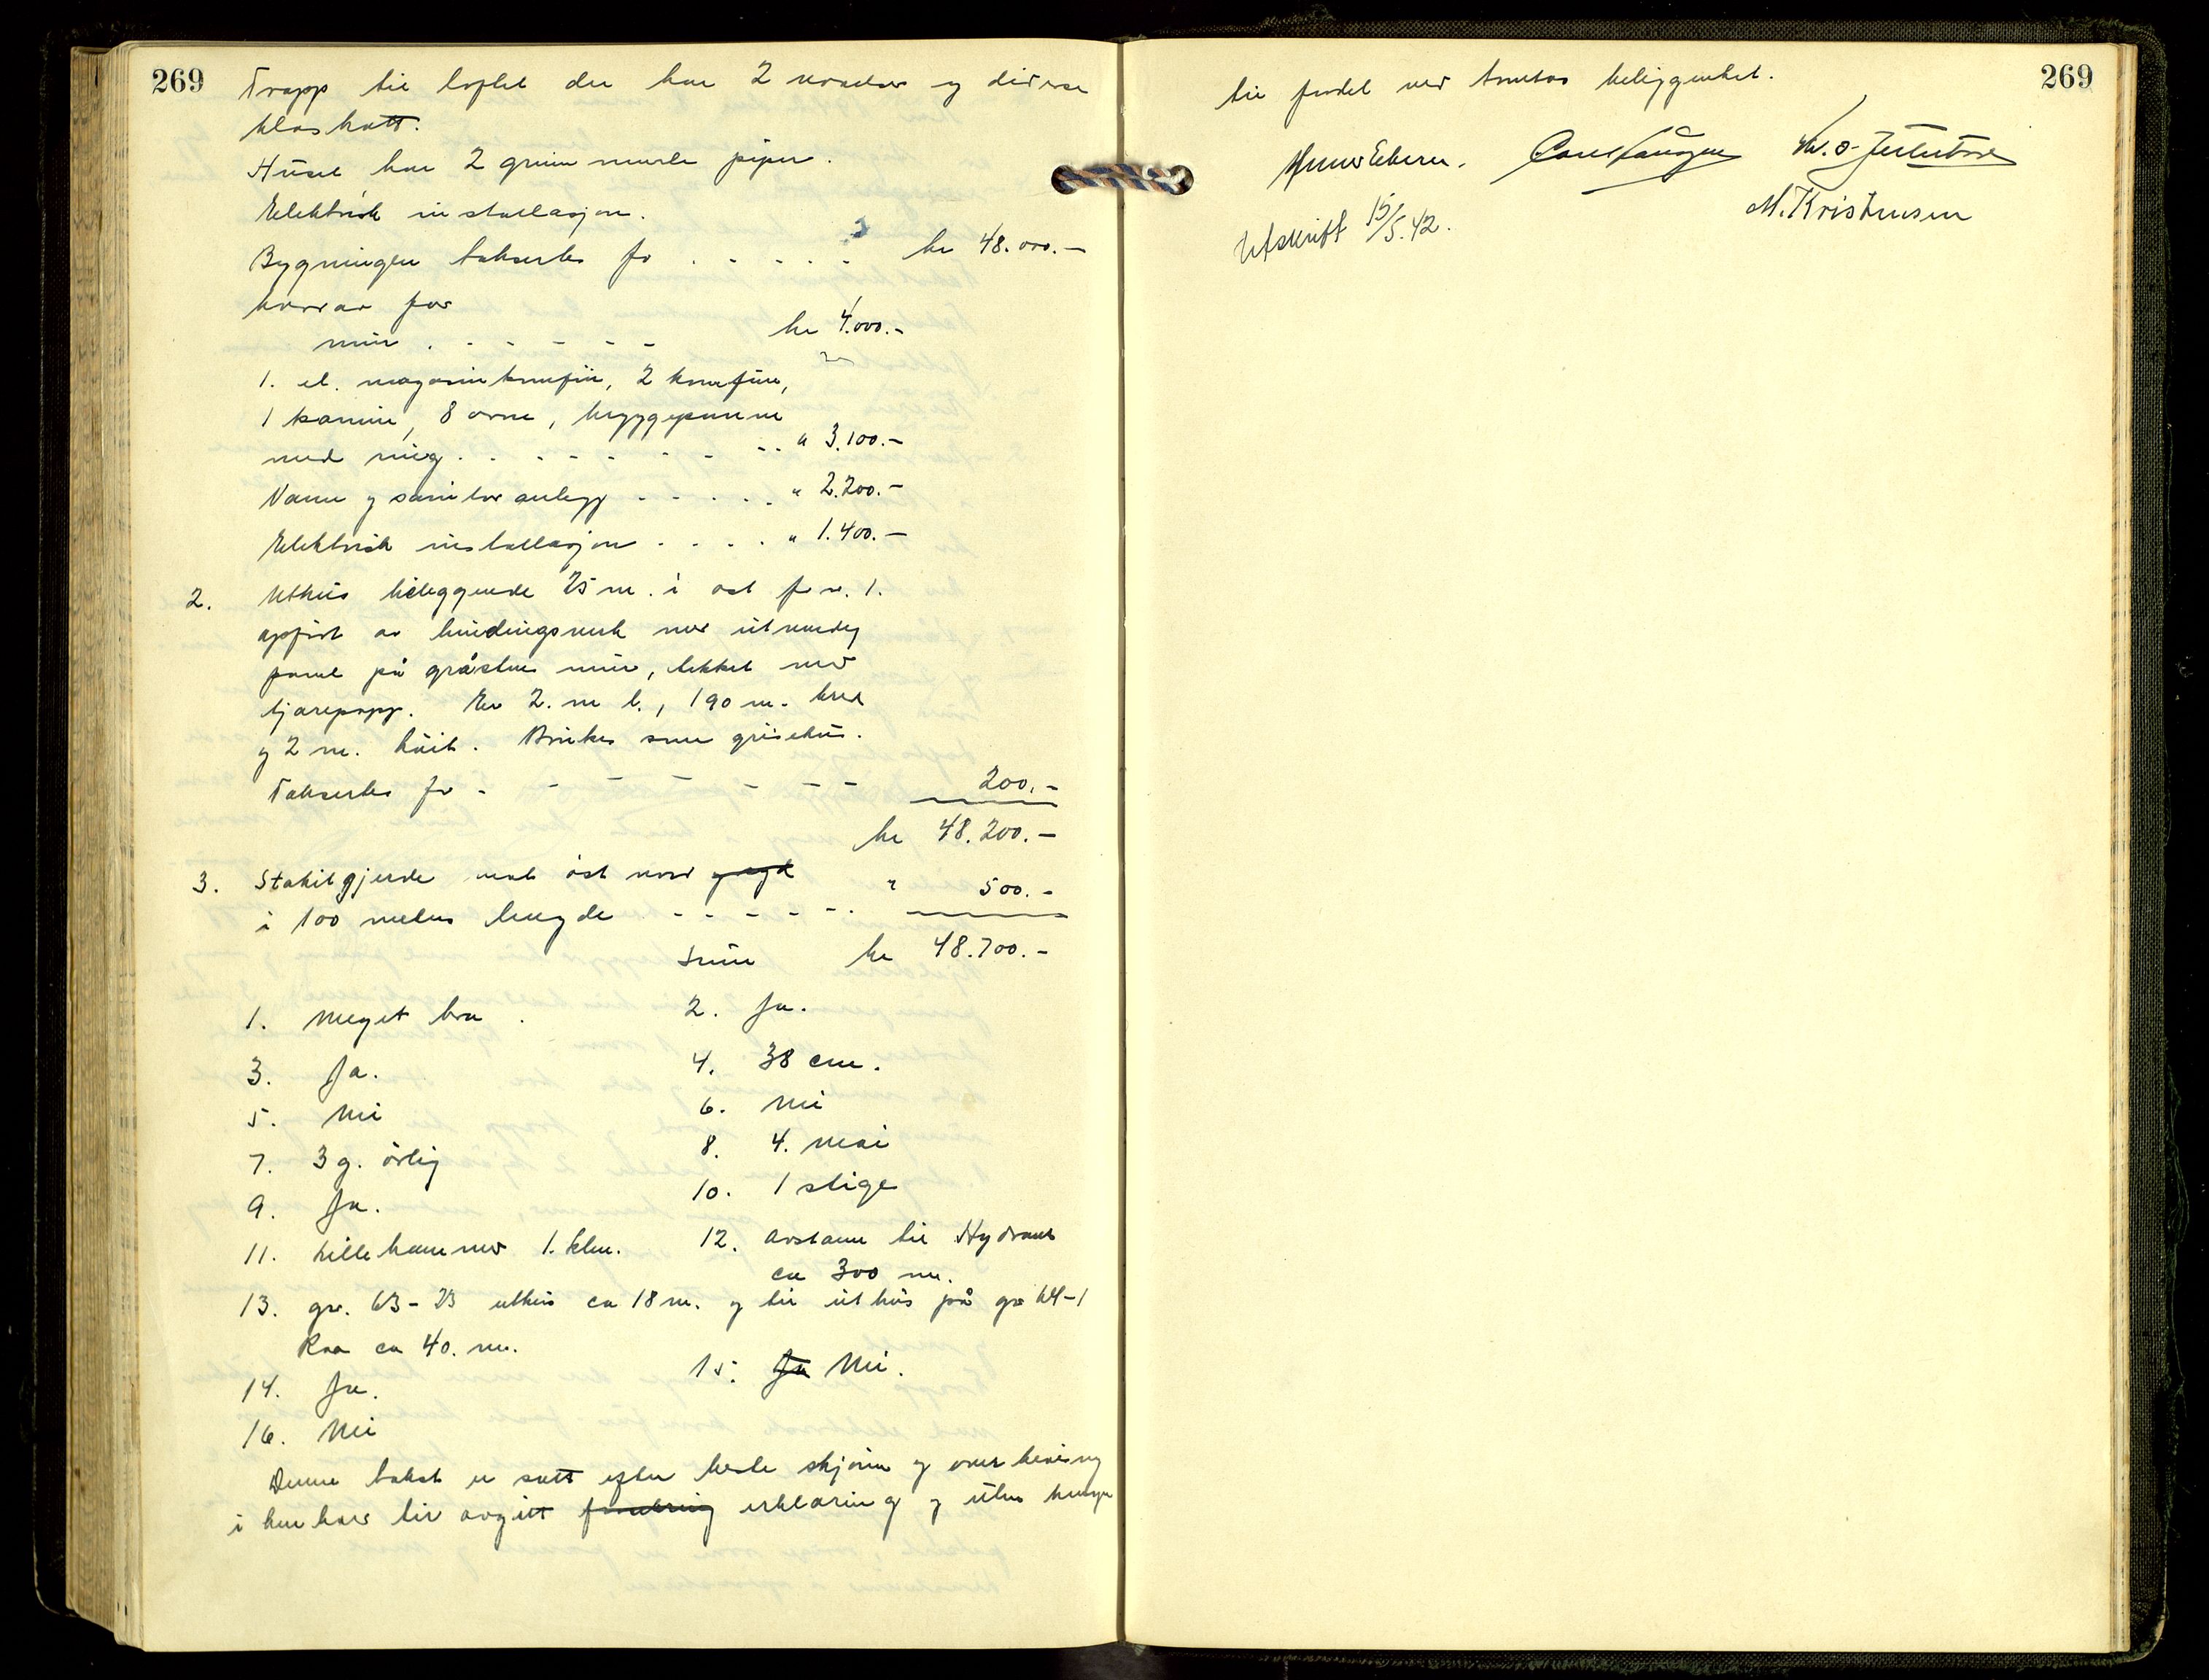 269
Trapp til loftet der har 2 værelser og diverse
kloskott.
Huset har 2 grunnmurte piper.
Elektrisk installasjon.
Bygningen takseres for . . . . . kr 48.000.-
hvorav for
mur . - - - - - kr 4.000.-
1. el. magasinkomfür, 2 komfürer,
1 kamin, 8 ovne, bryggepanne
med ring . . - - - - - - . . " 3.100.-
Vann og sanitær anlegg - - . . . " 2.200.-
Elektrisk installasjon . . . . " 1.400.-
2. Uthus beliggende 25 m. i øst for nr. 1.
oppført av bindingsverk med utvendig
panel på gråstens mur, tekket med
tjærepapp. Er 2. m l., 190 m. bred
og 2 m. høit. Brukes som grisehus.
Takseres for - - - - - - - 200.-
kr 48.200.-
3. Stakitgjerde vest øst nord og syd " 500.-
i 100 meters lengde - - - - - .
Sum kr 48.700.-
1. Meget bra . 2. Ja.
3. Ja. 4. 38 cm.
5. Nei 6. Nei
7. 3 g. årlig 8. 4. mai
9. Ja. 10. 1 stige
11. Lillehammer 1. klm. 12. Avstann til Hydrant
ca 300 m.
13. gr. 63-23 uthus ca 18 m. og til uthus på gr 64-1
ca 40. m.
14. Ja. 15. Ja Nei.
16. Nei
Denne takst er satt efter beste skjønn og overbevisning
i henhold til avgitt erklæring og uten hensyn
269
til fordel ved tomtens beliggenhet.
M. Kristensen
Utskrift 15/5.42.